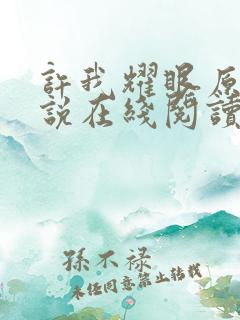 許我耀眼原
說在綫閱讀
孫不祿
未经同意禁止转载